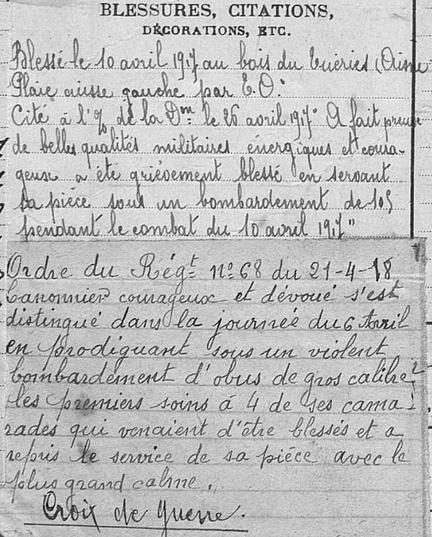 BLESSURES, CITATIONS,
DÉCORATIONS, ETC.
Blessé le 10 avril 1917 au bois du (Aisne
Plaie cuisse gauche par E.O.
Cité à l'O/ de la Don le 26 avril 1917 "A fait preuve
de belles qualités militaires énergiques et coura-
geux a été grièvement blessé en servant
sa pièce sous un bombardement de 105
pendant le combat du 10 avril 1917"
Ordre du Régt no 68 du 21-4-18
Canonnier courageux et dévoué s'est
distingué dans la journée du 6 Avril
en prodiguant sous un violent
bombardement d'obus de gros calibre
les premiers soins à 4 de ses cama-
rades qui venaient d'être blessés et a
repris le service de sa pièce avec le
plus grand calme.
Croix de Guerre.